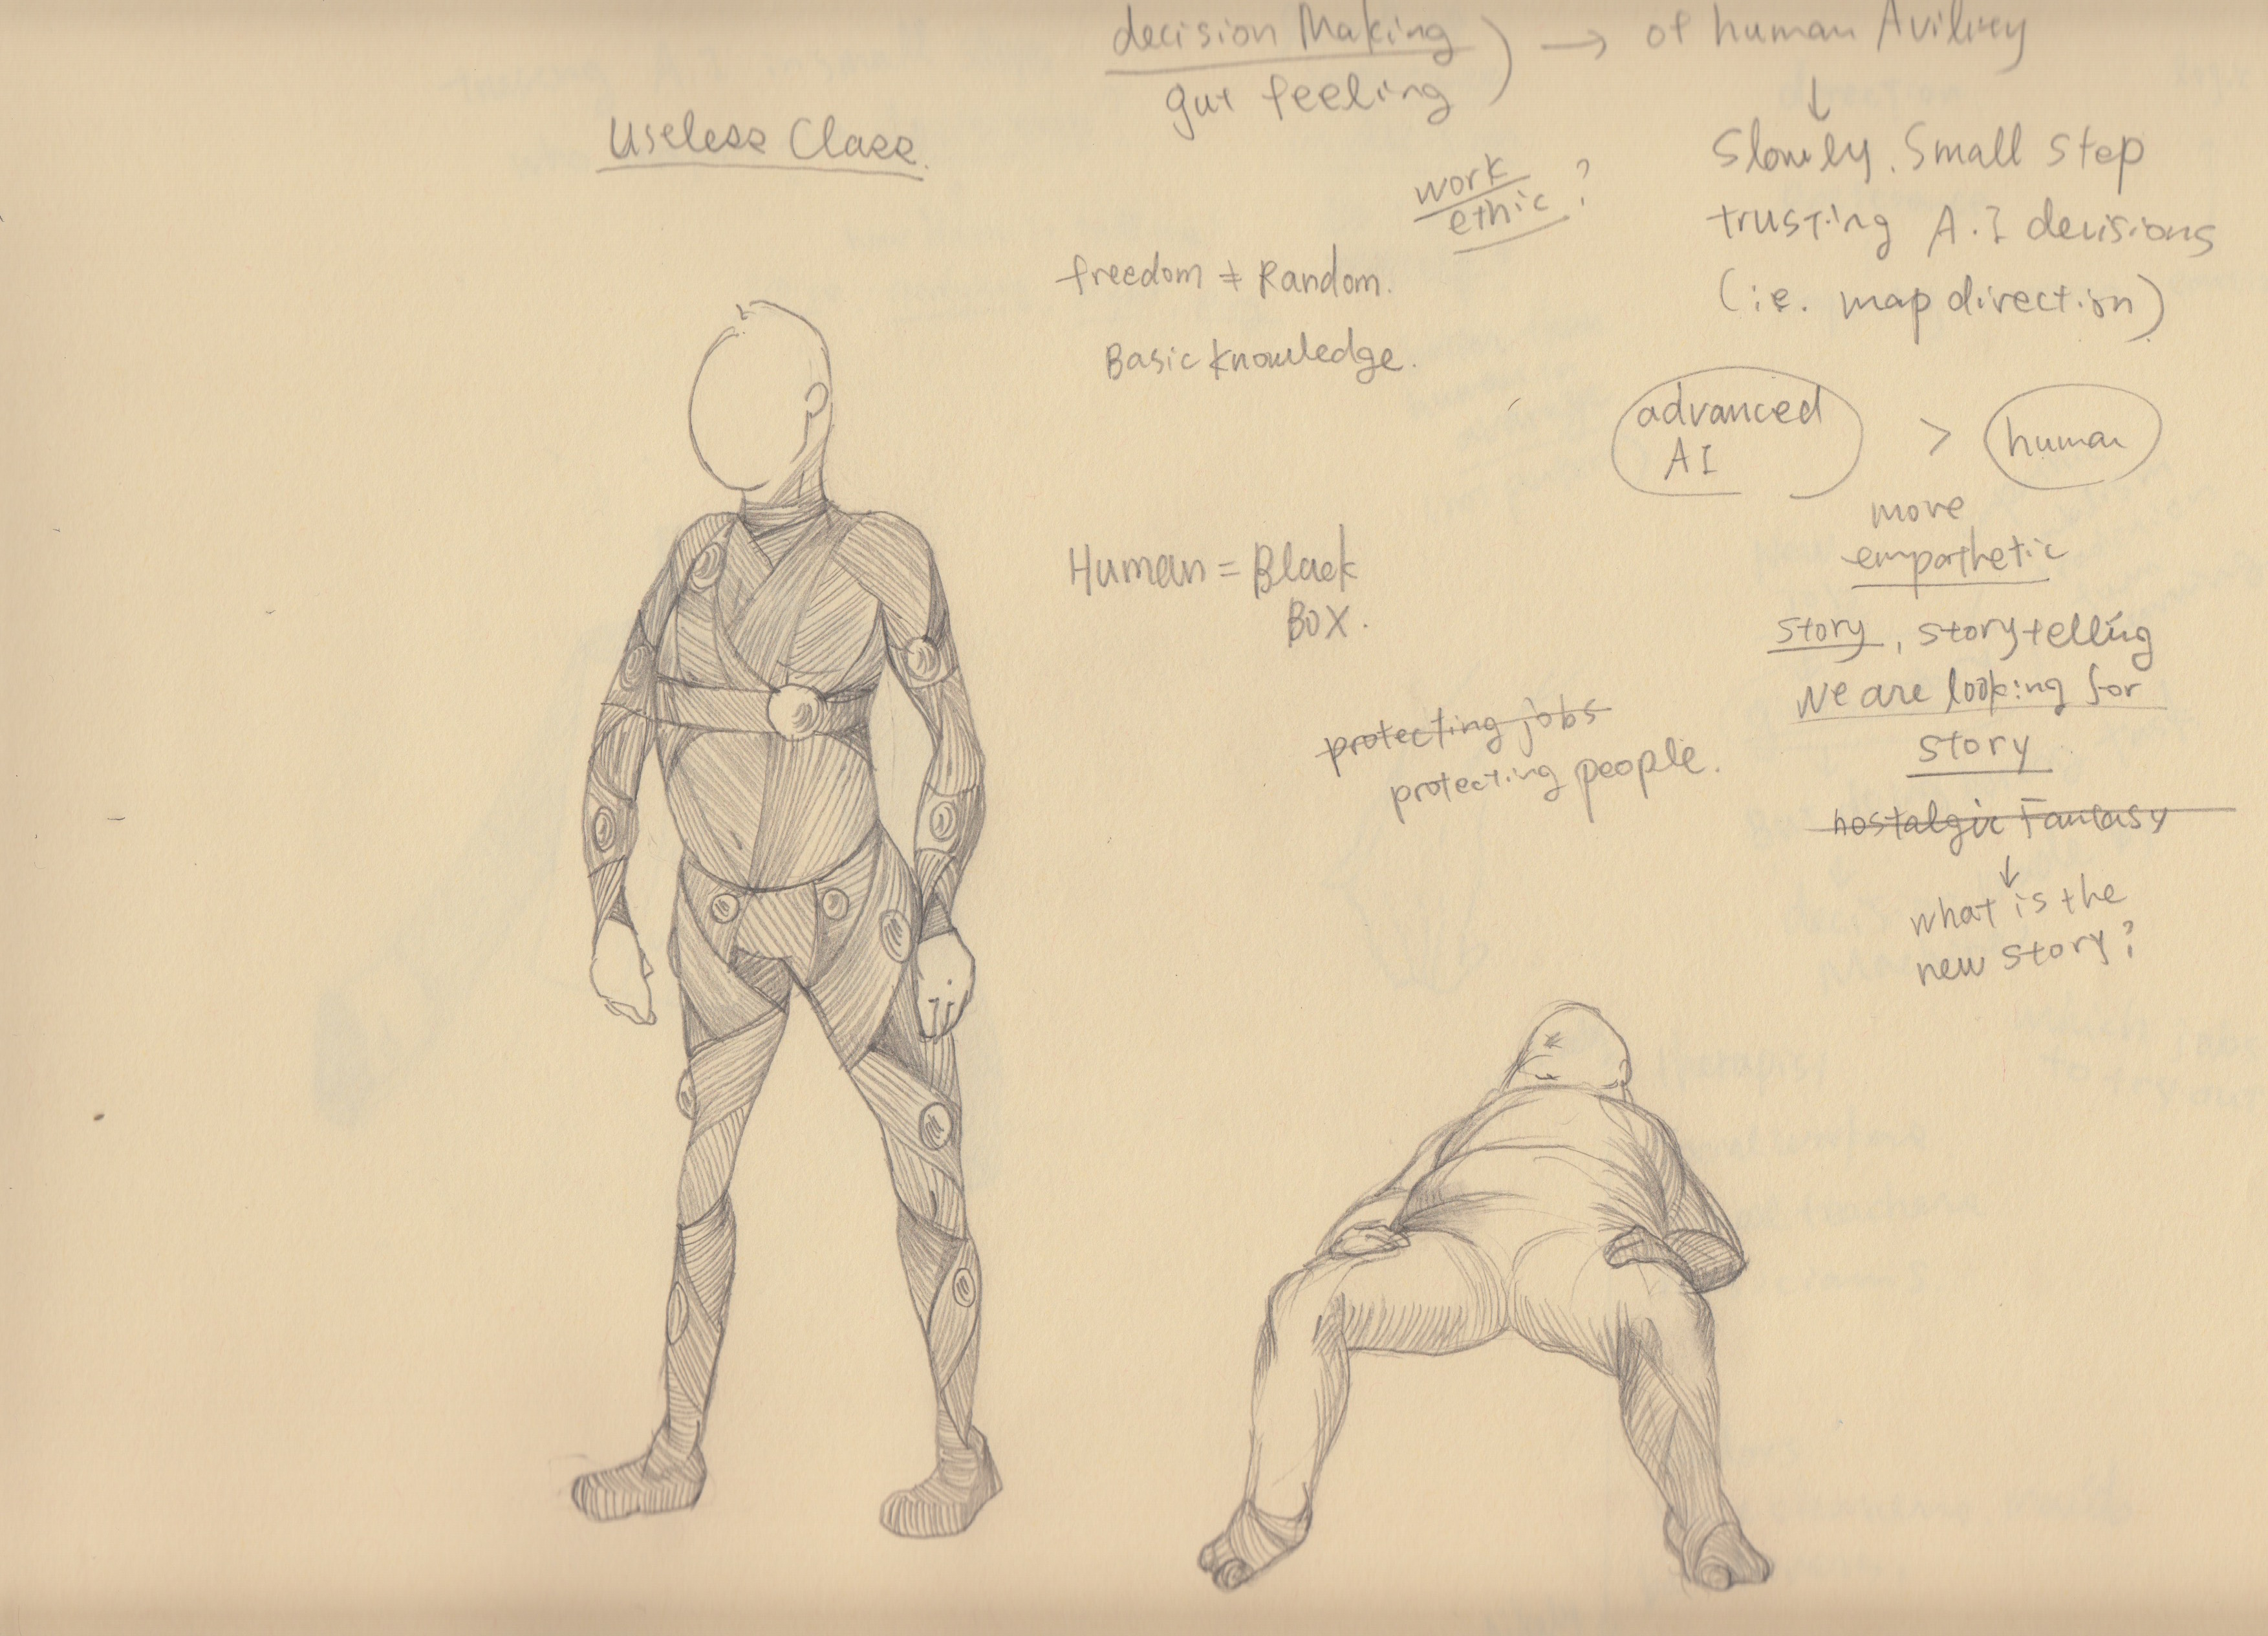 decision Making
gut feeling
→ of human Avility
↓
Useless Class.
work
ethic ?
Slowly. Small step
trusting A.I decisions
(i.e. map direction)
freedom ≠ Random.
Basic knowledge.
advanced
AI
>
human
more
empathetic
Human = Black
Box.
story, storytelling
we are looking for
story
protecting jobs
protecting people.
nostalgic Fantasy
↓
what is the
new story?